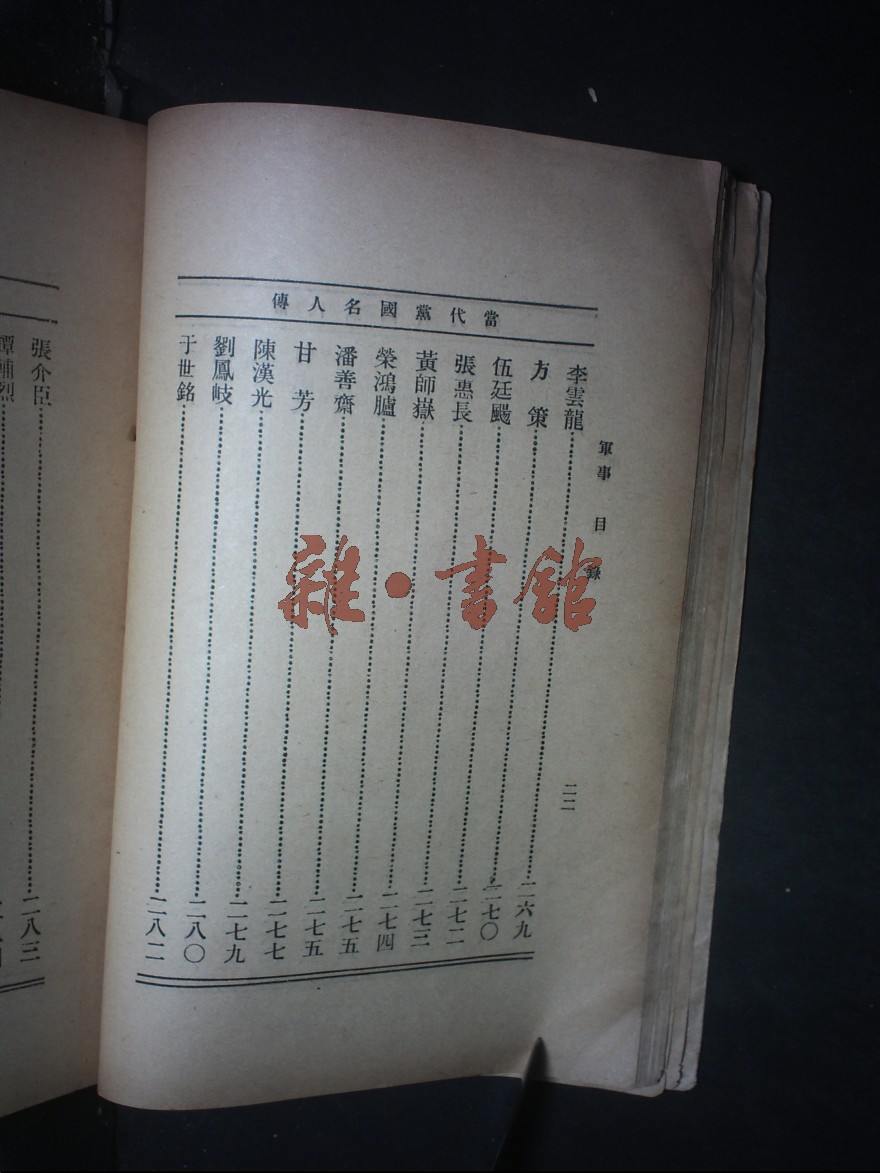 當代黨國名人傳
軍事 目錄 二二
李雲龍……二六九
方策……二七〇
伍廷颺……二七二
張惠長……二七三
黃師嶽……二七四
榮鴻臚……二七五
潘善齋……二七五
甘芳……二七七
陳漢光……二七九
劉鳳岐……二八〇
于世銘……二八二
張介臣……二八三
雜·書館